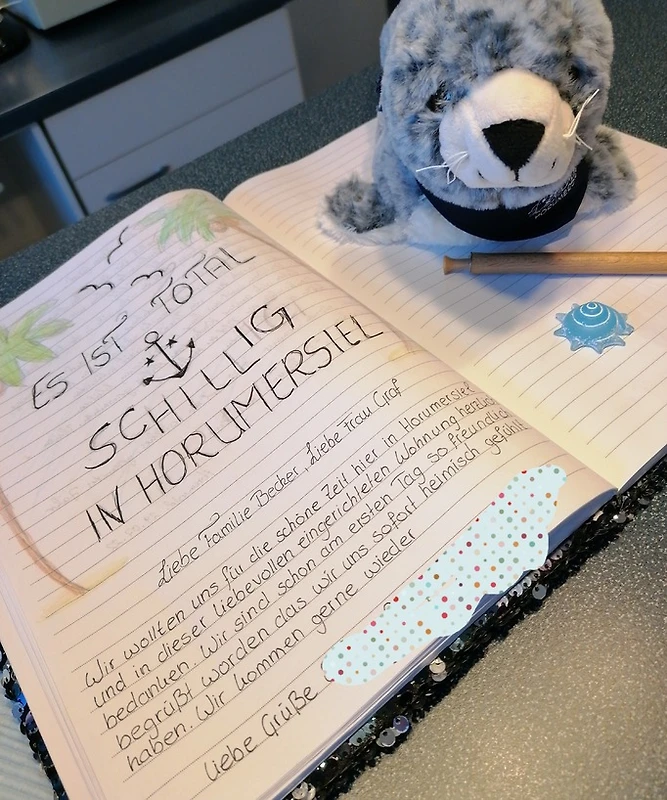 ES IST TOTAL
SCHILLIG
IN HORUMERSIEL
Liebe Familie Becker, Liebe Frau Graf
Wir wollten uns für die schöne Zeit hier in Horumersiel
und in dieser liebevollen eingerichteten Wohnung herzlich
bedanken. Wir sind schon am ersten Tag so freundlich
begrüßt worden das wir uns sofort heimisch gefühlt
haben. Wir kommen gerne wieder
liebe Grüße